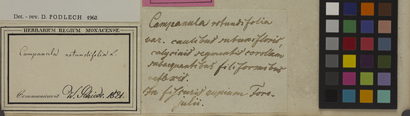 Det. - rev. D. PODLECH 1962
HERBARIUM REGIUM MONACENSE
Campanula rotundifolia L.
Communicavit W. Schiede. 1821.
Campanula rotundifolia
var. caulibus subunifloris
calycinis segmentis corollam
subaequantibus filiformibus
reflexis.
In fissuris rupium.
julii.